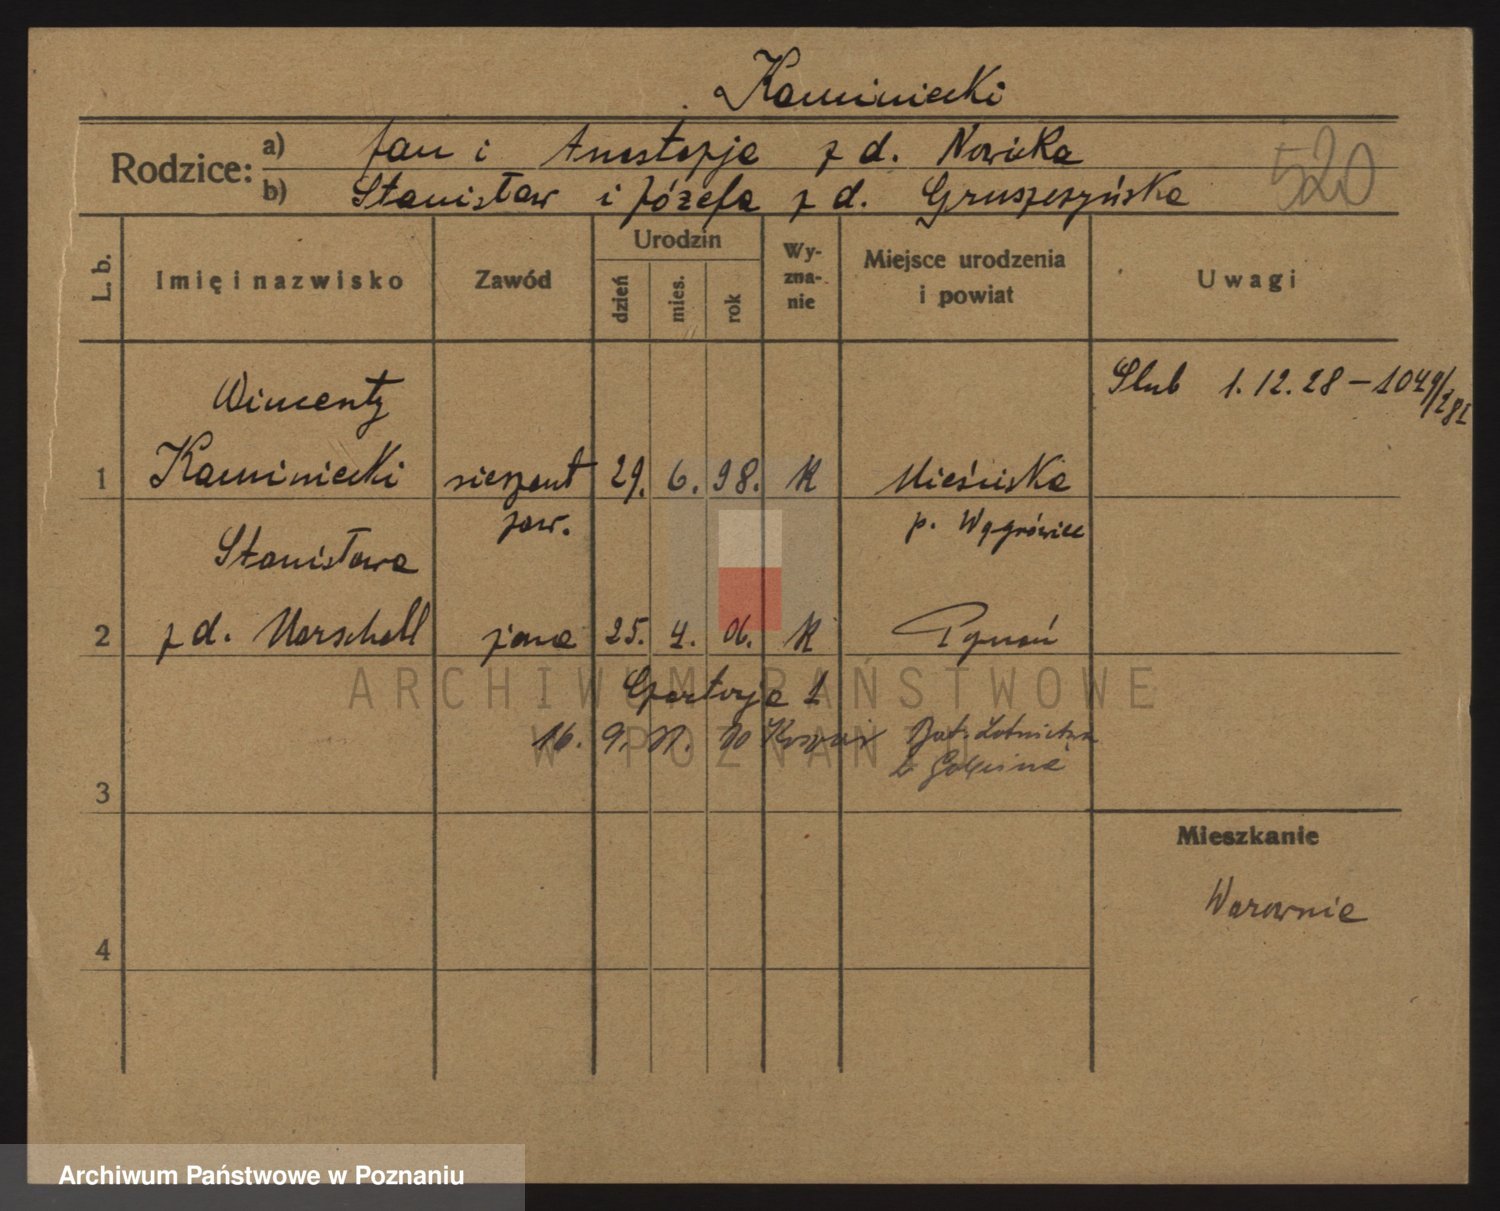 Kaminiecki
Rodzice: a) Jan i Anastazja z d. Nowicka
b) Stanisław i Józefa z d. Gruszczyńska
520
L. b.
Imię i nazwisko
Zawód
Urodzin
dzień
mies.
rok
Wy-
zna-
nie
Miejsce urodzenia
i powiat
Uwagi
Wincenty
Ślub 1.12.28 – 1049/28I
1 Kaminiecki sierżant 29. 6. 98. K Mieścisko
zaw. p. Wągrówiec
Stanisława
2 z d. Marschall żona 25. 4. 06. K Poznań
16. 9.
Lotnictwa
3
Mieszkanie
4
ARCHIWUM PAŃSTWOWE
W POZNANIU
Archiwum Państwowe w Poznaniu